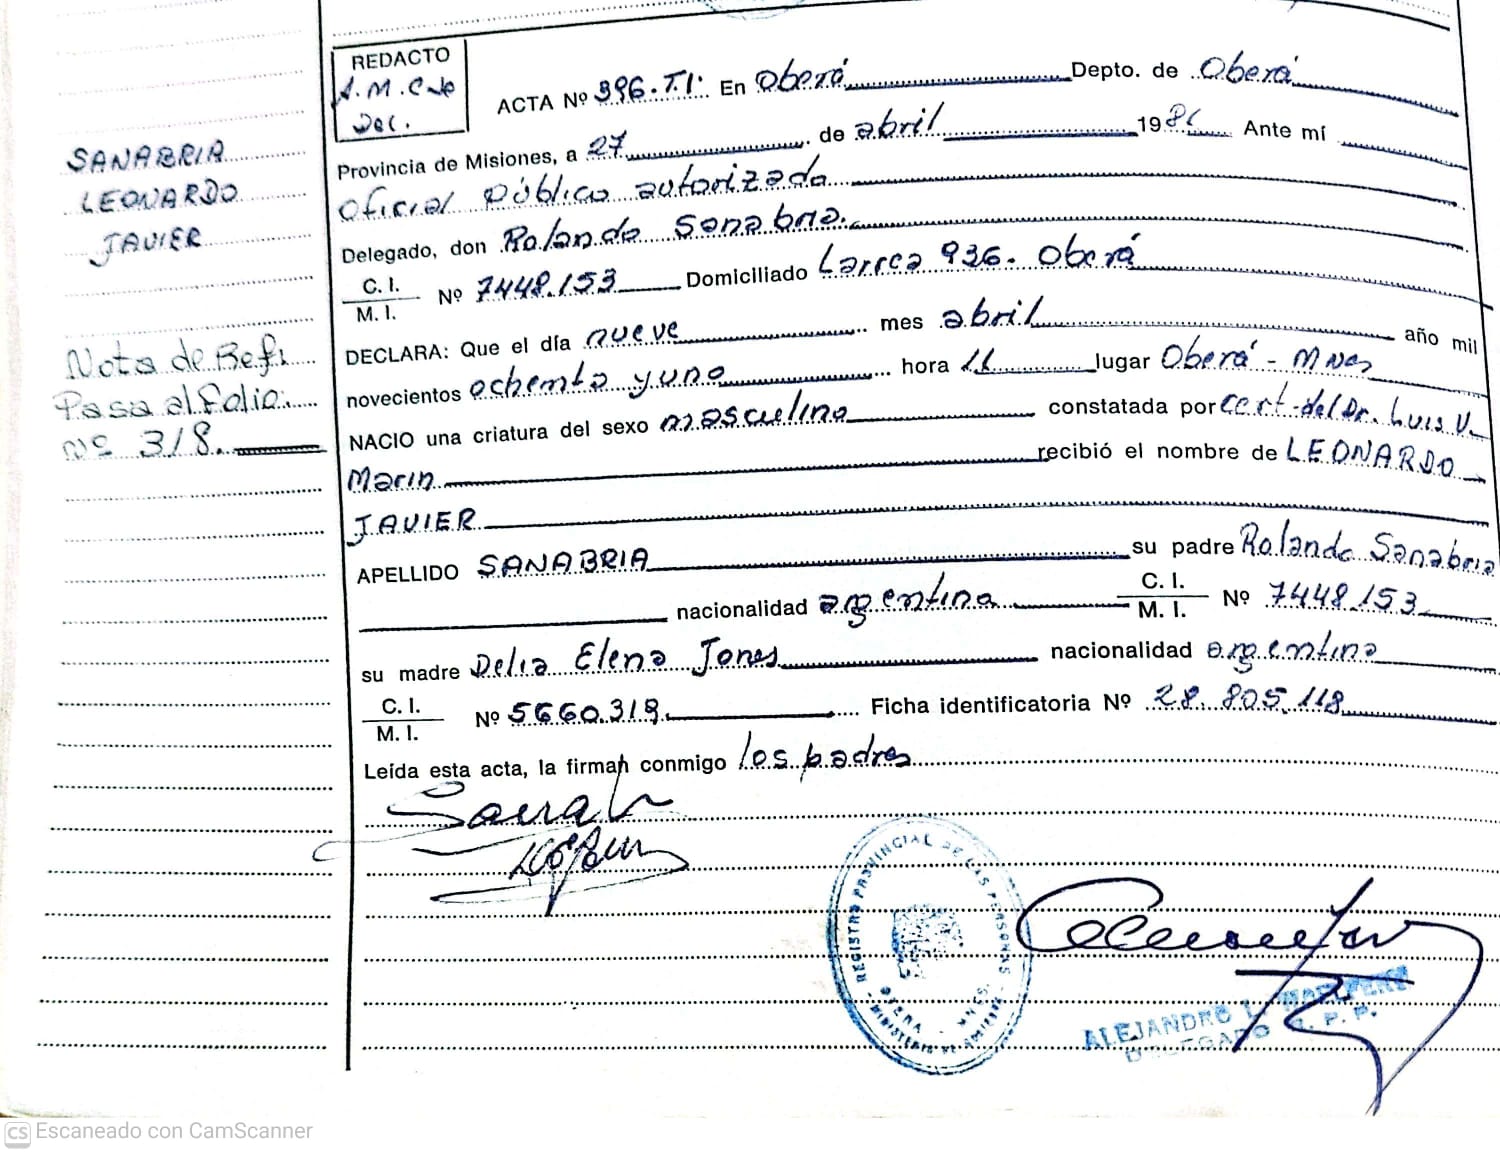 REDACTO
A.M.C de
Dec.
ACTA Nº 396.T.I. En Oberá Depto. de Oberá
Provincia de Misiones, a 27 de abril 198 Ante mí
Oficial Público autorizado
Delegado, don Rolando Sanabria.
C. I.
M. I. Nº 7448.153 Domiciliado Larrea 936. Oberá
DECLARA: Que el día nueve mes abril año mil
novecientos ochenta y uno hora 11 lugar Oberá - Mnes
NACIO una criatura del sexo masculino constatada por cert. del Dr. Luis V.
Marin recibió el nombre de LEONARDO
JAVIER
APELLIDO SANABRIA su padre Rolando Sanabria
nacionalidad argentina C. I.
M. I. Nº 7448.153
su madre Delia Elena Jones nacionalidad argentina
C. I.
M. I. Nº 5660.319 Ficha identificatoria Nº 28.805.118
Leída esta acta, la firman conmigo los padres
SANABRIA
LEONARDO
JAVIER
Nota de Ref.
Pasa al folio.
nº 318.
REGISTRO PROVINCIAL DE LAS PERSONAS
OBERA - MNES.
MINISTERIO DE
ALEJANDRO L.
DELEGADO R. P. P.
CS Escaneado con CamScanner